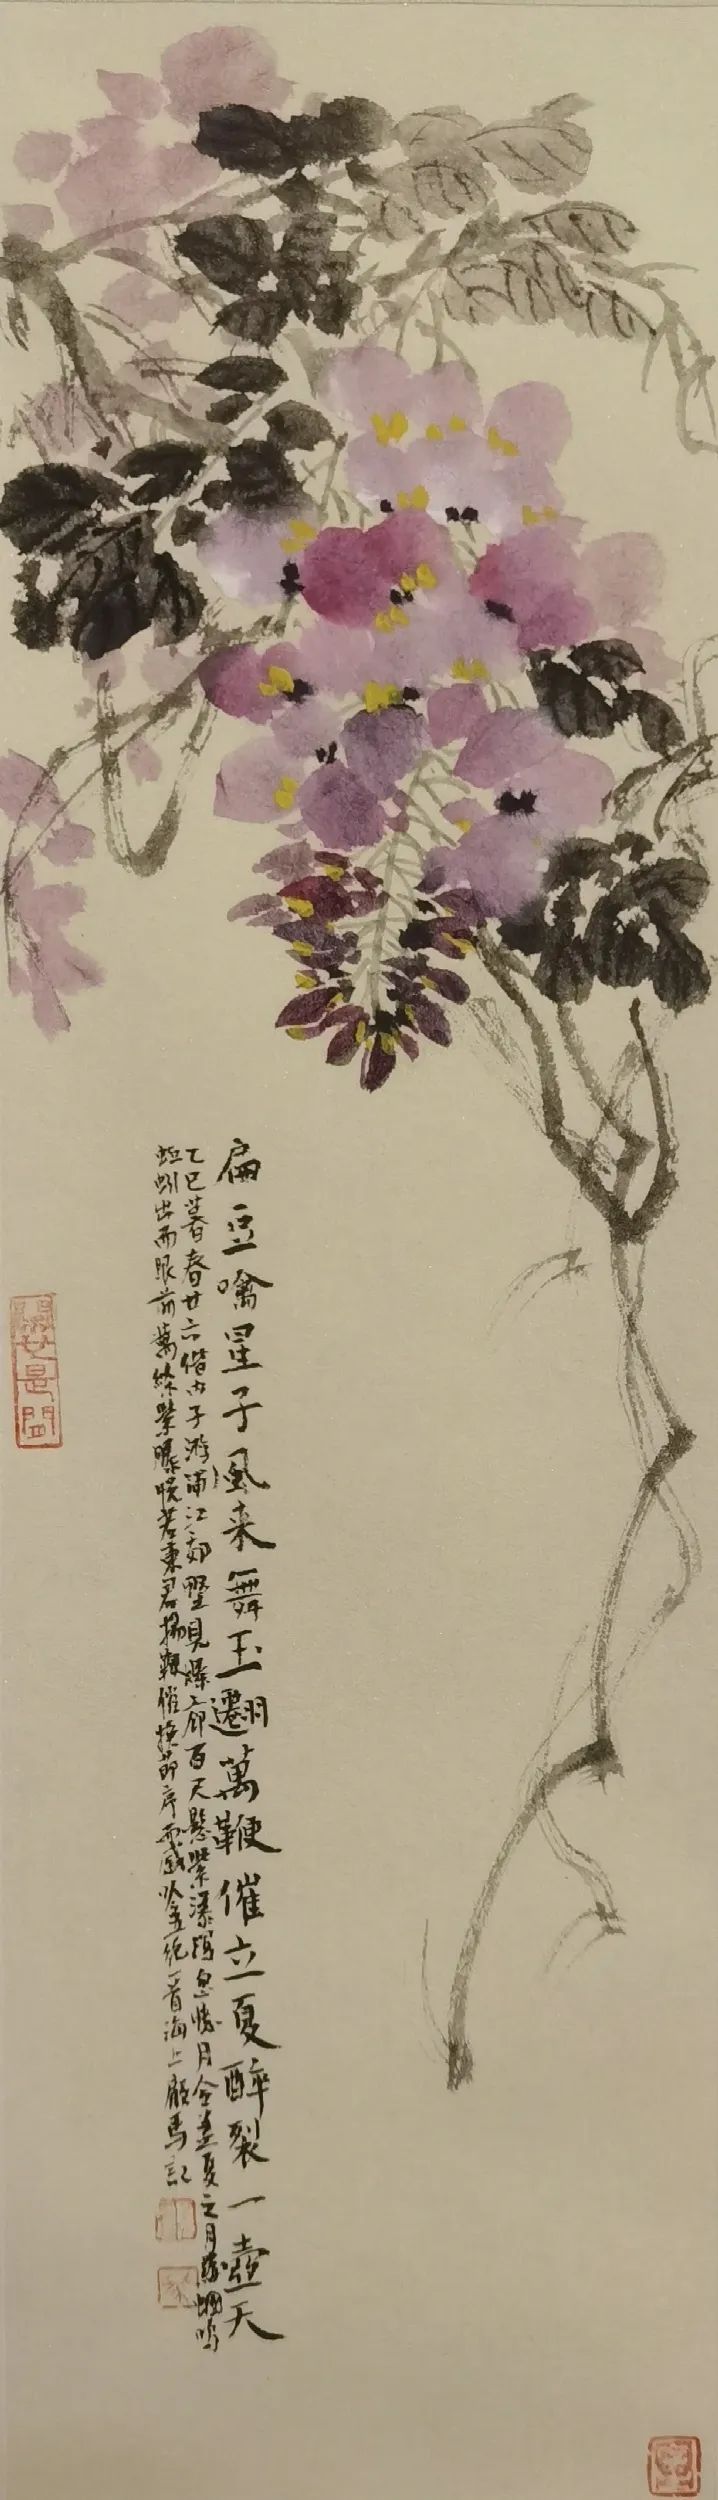 扁豆噙星子風来舞玉翾萬鞭催立夏醉裂一壺天
乙巳暮春廿六偕内子游浦江郊墅見緣廊百尺懸紫瀑月令孟夏之月螻蟈鳴
蚯蚓出而眼前萬條紫曝恍若東君揚鞭催換節序而感吟五絕一首海上願馬記